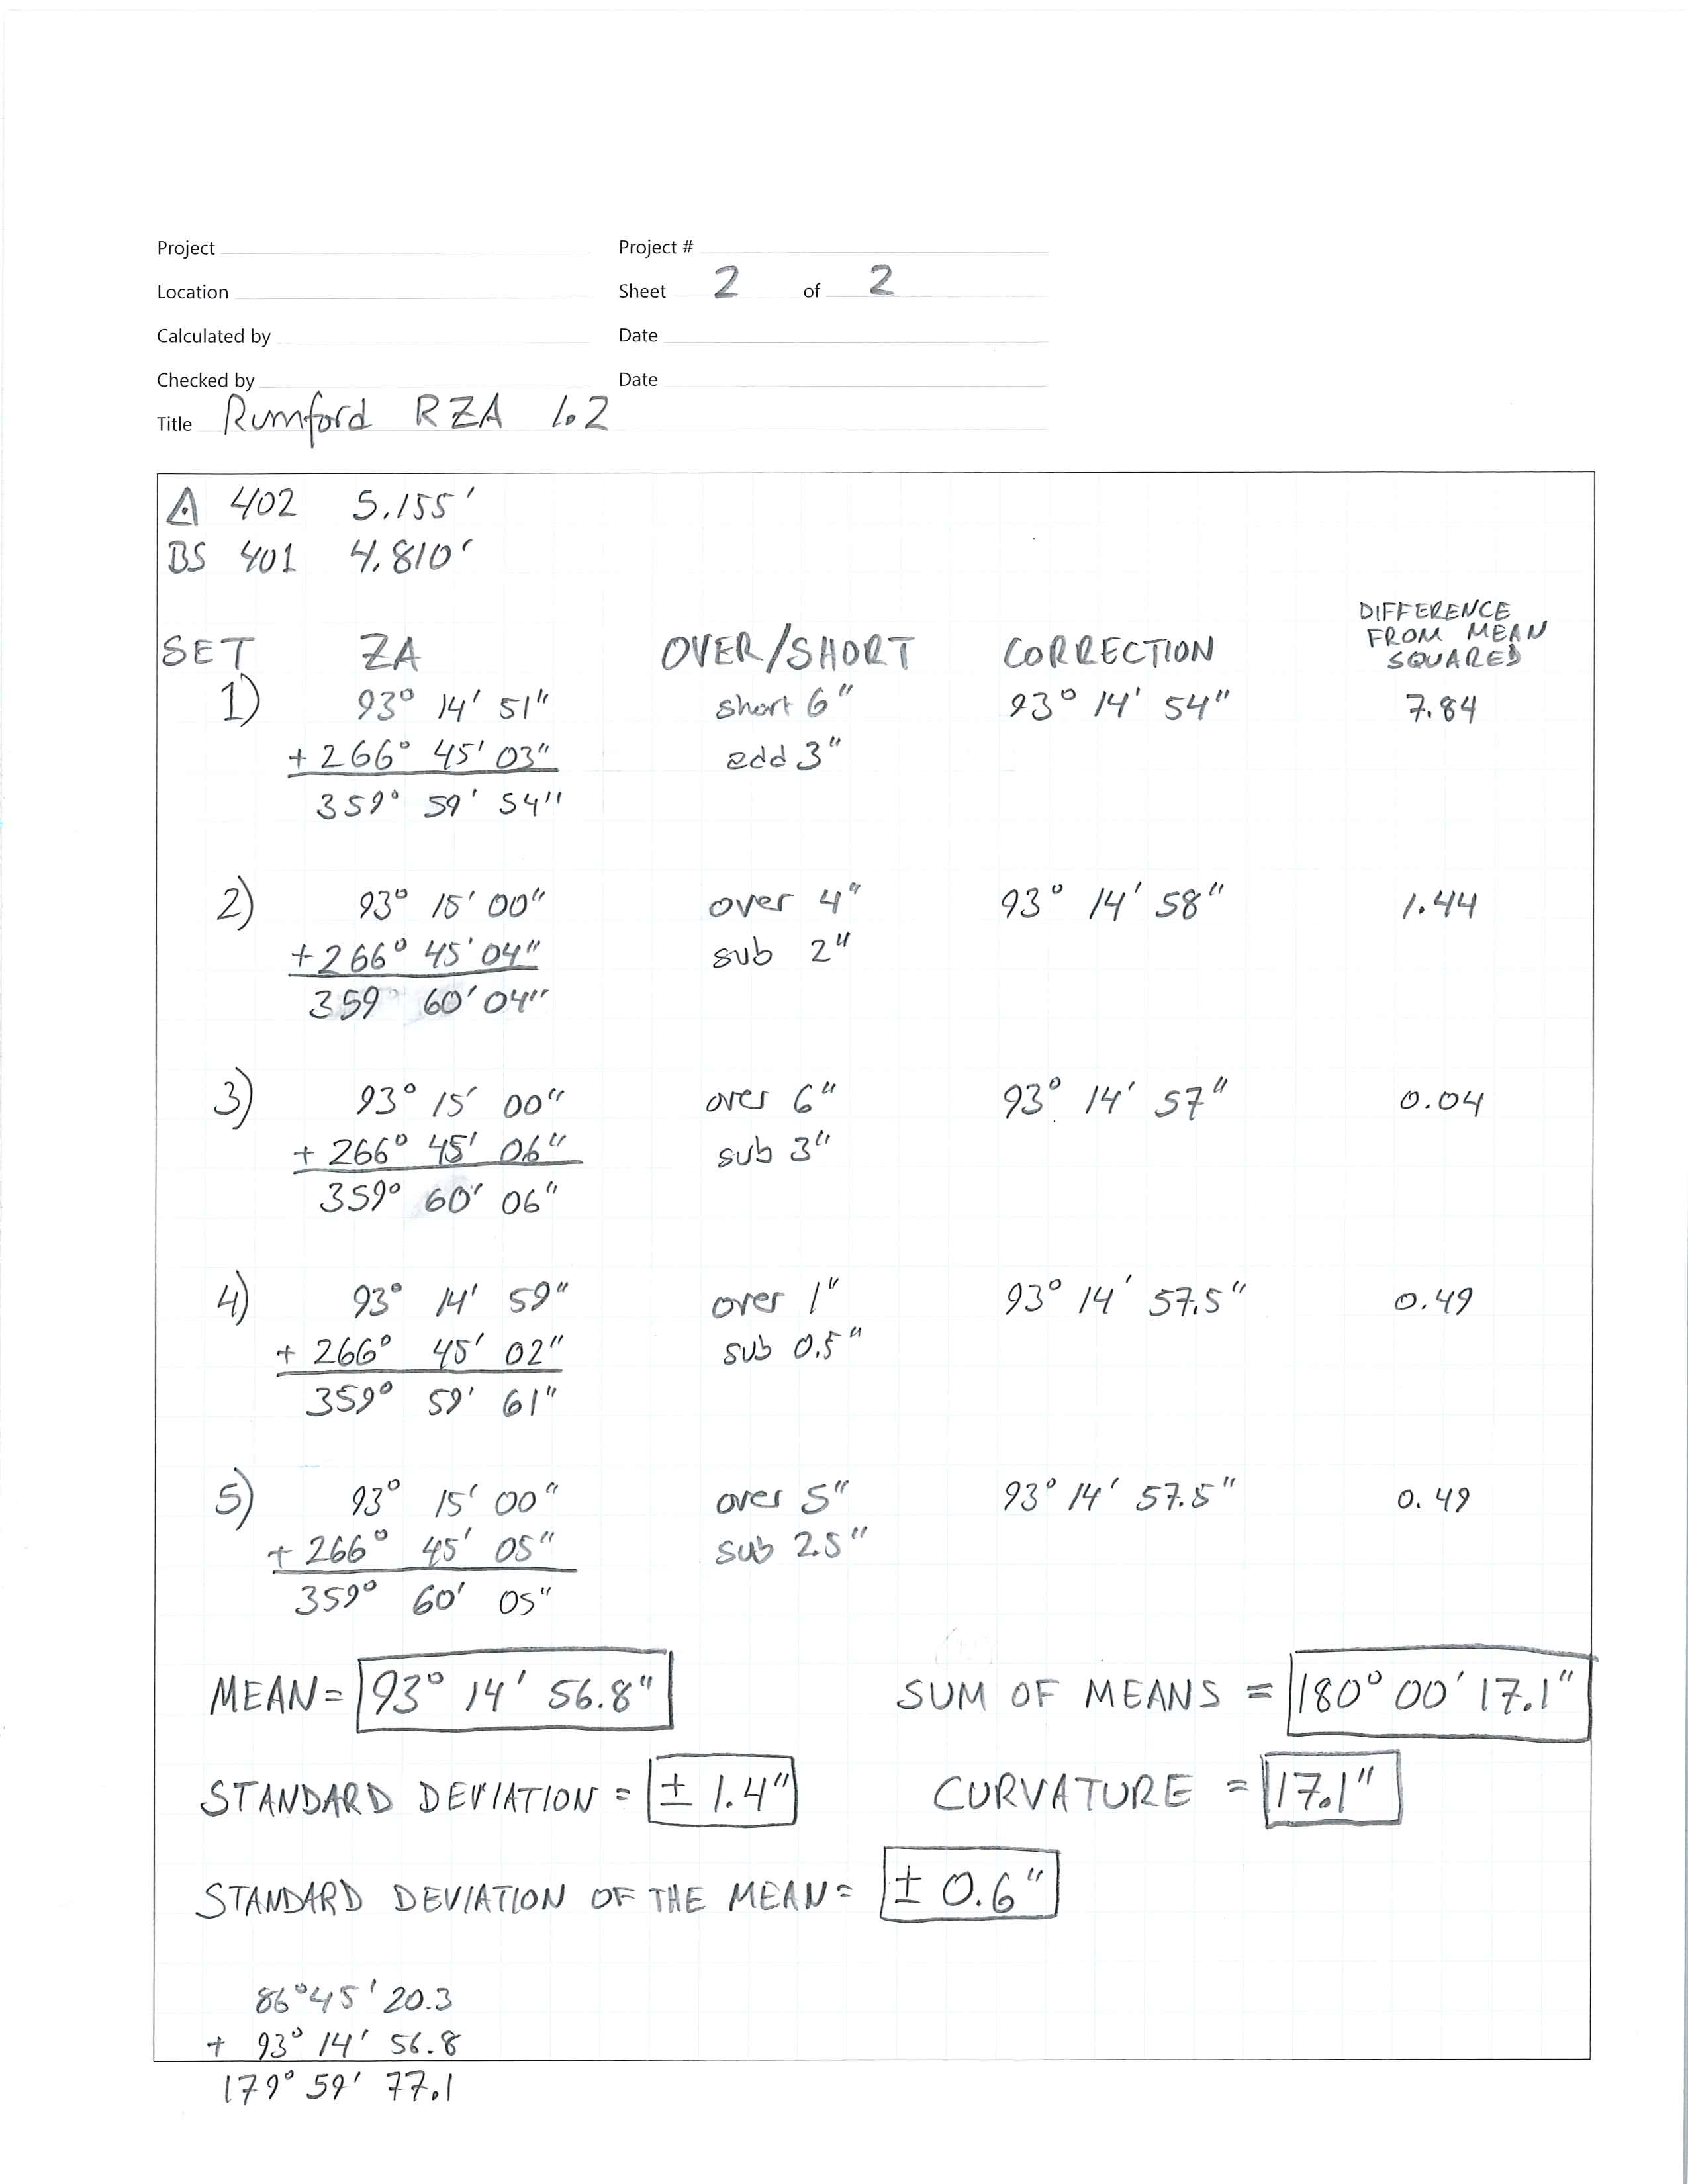 Project Project #
Location Sheet 2 of 2
Calculated by Date
Checked by Date
Title Rumford RZA 1.2
△ 402 5.155'
BS 401 4.810'
SET ZA OVER/SHORT CORRECTION DIFFERENCE FROM MEAN SQUARED
1) 93° 14' 51" short 6" 93° 14' 54" 7.84
+ 266° 45' 03" add 3"
359° 59' 54"
2) 93° 15' 00" over 4" 93° 14' 58" 1.44
+ 266° 45' 04" sub 2"
359 60' 04"
3) 93° 15' 00" over 6" 93° 14' 57" 0.04
+ 266° 45' 06" sub 3"
359° 60' 06"
4) 93° 14' 59" over 1" 93° 14' 57.5" 0.49
+ 266° 45' 02" sub 0.5"
359° 59' 61"
5) 93° 15' 00" over 5" 93° 14' 57.5" 0.49
+ 266° 45' 05" sub 2.5"
359° 60' 05"
MEAN = 93° 14' 56.8" SUM OF MEANS = 180° 00' 17.1"
STANDARD DEVIATION = ± 1.4" CURVATURE = 17.1"
STANDARD DEVIATION OF THE MEAN = ± 0.6"
86° 45' 20.3
+ 93° 14' 56.8
179° 59' 77.1